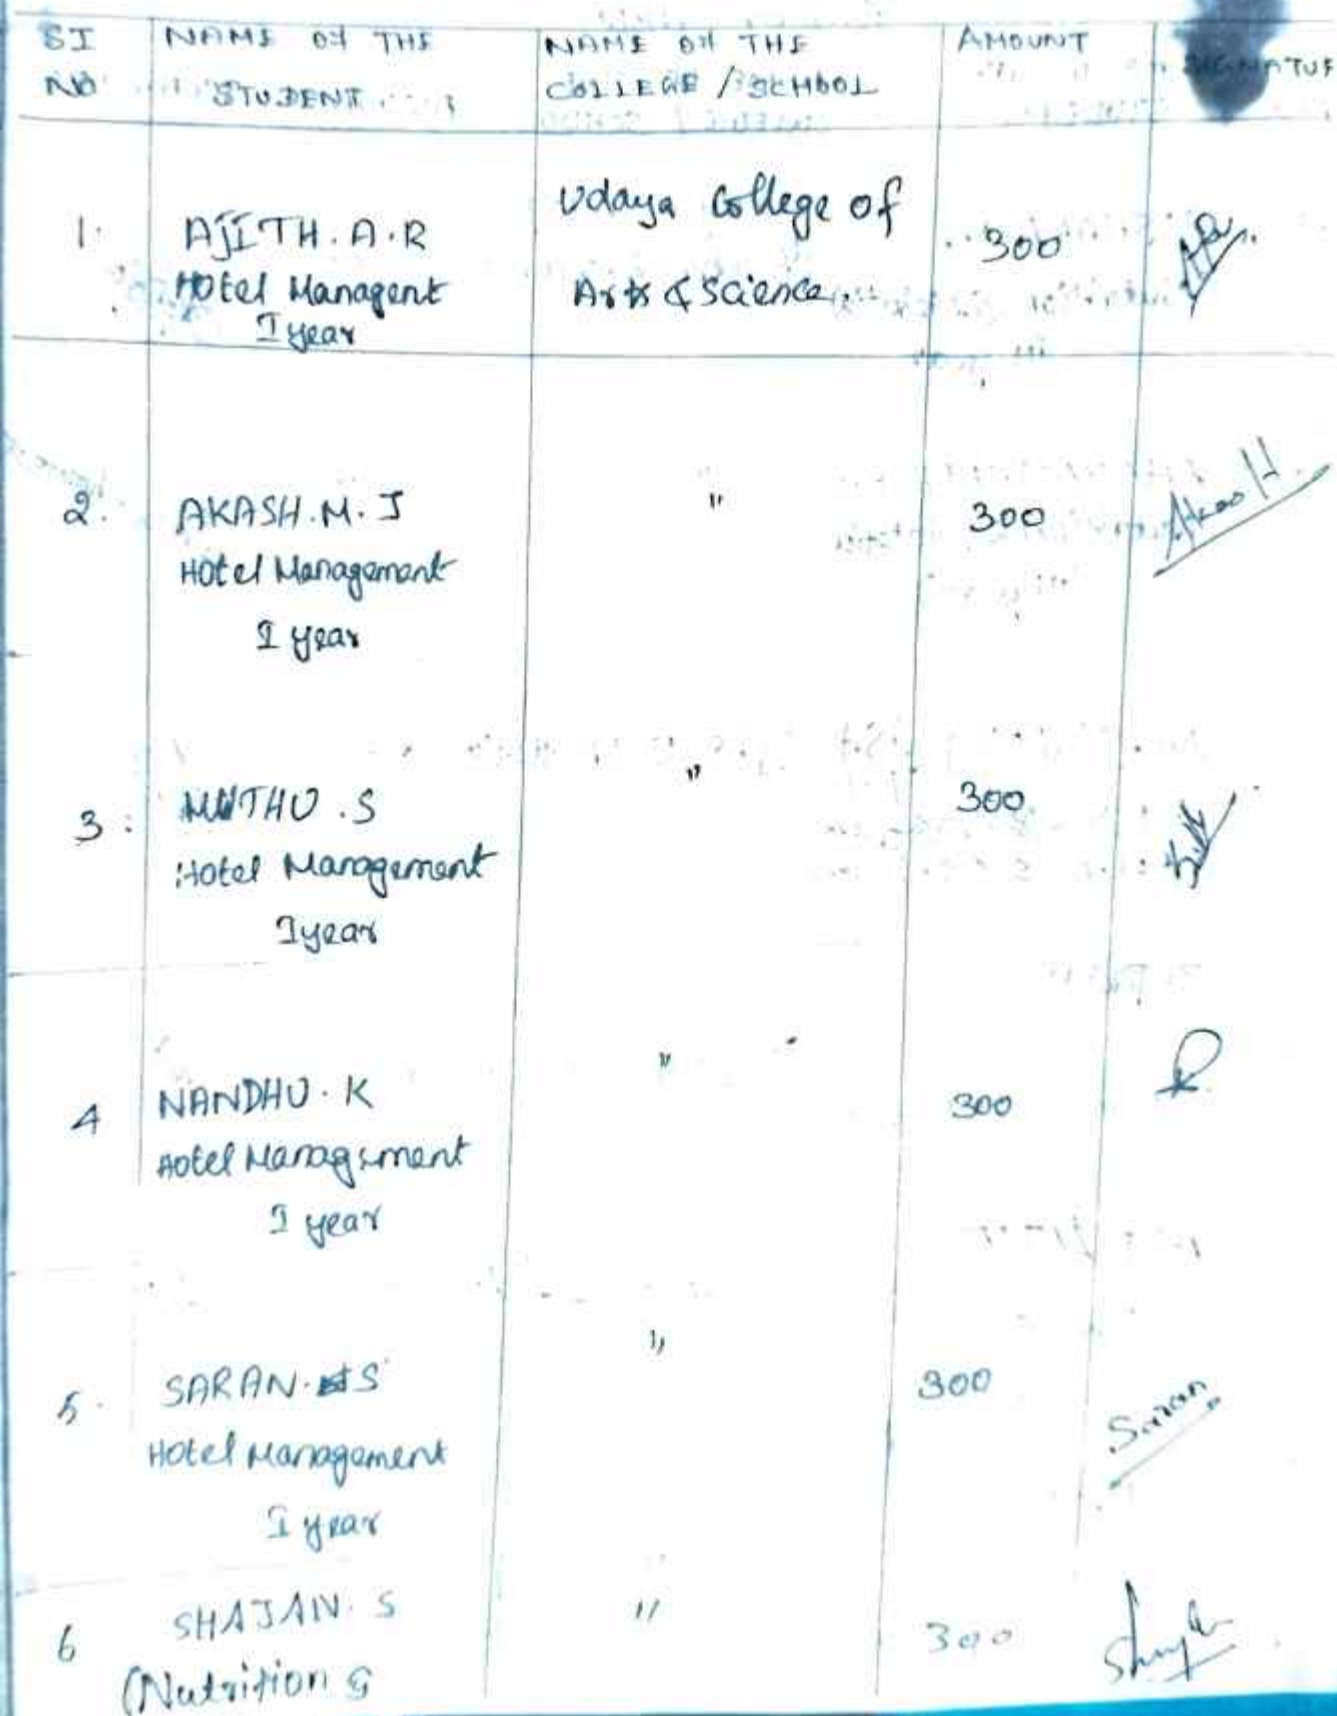 SI NO
NAME OF THE STUDENT
NAME OF THE COLLEGE / SCHOOL
AMOUNT
SIGNATUR
1.
AJITH.A.R
Hotel Managent
I year
Udaya College of
Arts & Science.
300
2.
AKASH.M.J
Hotel Management
I year
"
300
Akash
3.
MUTHU.S
Hotel Management
I year
"
300
4
NANDHU.K
Hotel Management
I year
"
300
5.
SARAN.S
Hotel Management
I year
"
300
Saran
6
SHAJAN.S
(Nutrition &
"
300